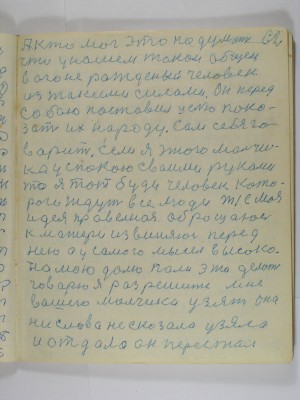 А кто мог это подумать
что у нашем таком общем
вагоне рожденый человек
из такими силами. Он перед
собою поставил цель пока-
зать их народу. Сам себя го-
варит, если я этого мальчи-
ка успокою своими руками
то я тот буду человек кото-
рого ждут все люди
идея правельная оброщаюсь
к матери извиняюсь перед
нею а у самого мысль высоко.
на мою долю пали это делать
говарю я разрешите мне
вашего малчика узять она
ни слова не сказала узяла
и отдала он перестал